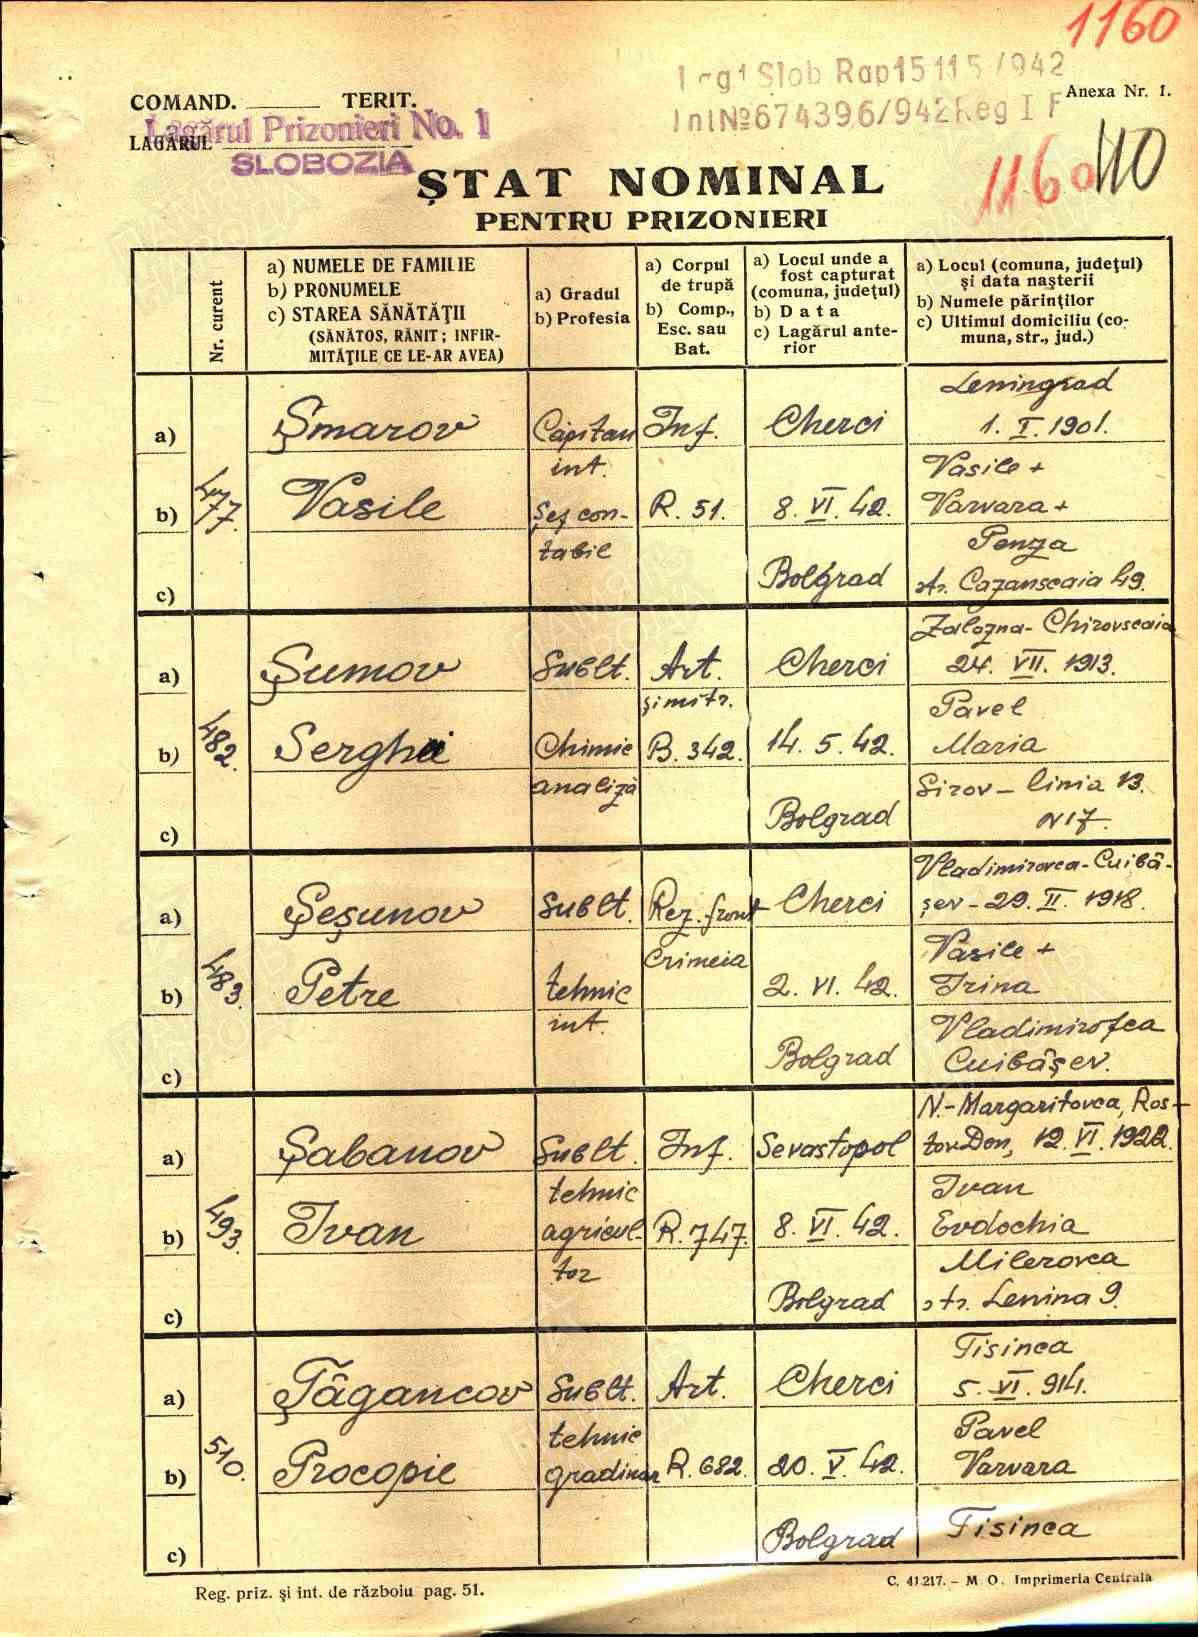 1160
Lag 1 Slob Rap 15115/942
Int № 674396/942 Reg I F
Anexa Nr. 1.
COMAND. TERIT.
LAGĂRUL
Lagărul Prizonieri No. 1
SLOBOZIA
1160
110
ȘTAT NOMINAL
PENTRU PRIZONIERI
Nr. curent
a) NUMELE DE FAMILIE
b) PRONUMELE
c) STAREA SĂNĂTĂȚII
(SĂNĂTOS, RĂNIT; INFIR-
MITĂȚILE CE LE-AR AVEA)
a) Gradul
b) Profesia
a) Corpul
de trupă
b) Comp.,
Esc. sau
Bat.
a) Locul unde a
fost capturat
(comuna, județul)
b) Data
c) Lagărul ante-
rior
a) Locul (comuna, județul)
și data nașterii
b) Numele părinților
c) Ultimul domiciliu (co-
muna, str., jud.)
477.
a) Șmarov Căpitan Inf. Cherci Leningrad
1. I. 1901.
int. Vasile +
b) Vasile Șef con- R. 51. 8. VI. 42. Varvara +
tabil Penza
c) Bolgrad str. Cazanscaia 49.
482.
a) Șumov Sublt. Art. Cherci Zalozna - Chirovscaia
24. VII. 1913.
și mitr. Pavel
b) Serghei Chimie B. 342. 14. 5. 42. Maria
analiză
c) Bolgrad Sirov - linia 13.
N 17.
483.
a) Șeșunov Sublt. Rez. front Cherci Vladimirovca - Cuibâ-
șev - 29. II. 1918.
Crimeia Vasile +
b) Petre tehnic 2. VI. 42. Irina
int.
c) Bolgrad Vladimirofca
Cuibâșev.
493.
a) Șabanov Sublt. Inf. Sevastopol N.- Margaritovca, Ros-
tov Don, 12. VI. 1922.
tehnic Ivan
b) Ivan agricul- R. 747. 8. VI. 42. Evdochia
tor Milerovca
c) Bolgrad str. Lenina 9.
510.
a) Țâgancov Sublt. Art. Cherci Tisinca
5. VI. 914.
tehnic Pavel
b) Procopie gradinar R. 682. 20. V. 42. Varvara
c) Bolgrad Tisinca
Reg. priz. și int. de războiu pag. 51.
C. 41.217. - M. O. Imprimeria Centrala